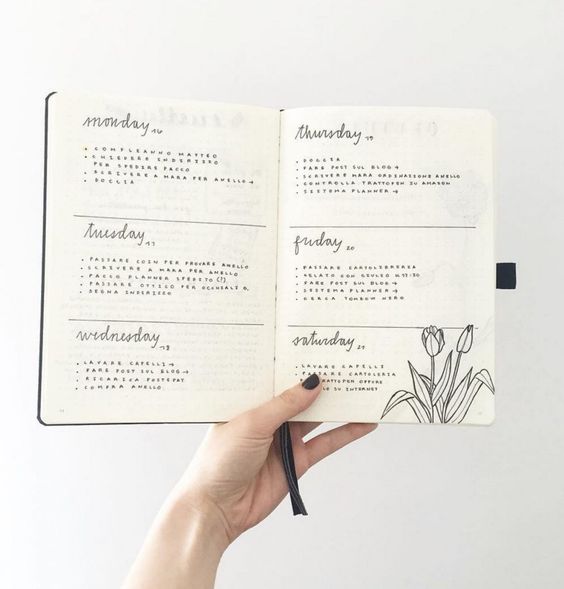 monday 16
• COMPLEANNO MATTEO
• CHIEDERE INDIRIZZO
PER SPEDIRE PACCO
• SCRIVERE A MARA PER ANELLO →
• DOCCIA
tuesday 17
• PASSARE COIN PER PROVARE ANELLO
• SCRIVERE A MARA PER ANELLO
• PACCO PLANNER SPEDITO (?)
• PASSARE OTTICO PER OCCHIALI
• SEGNA INDIRIZZO
wednesday 18
• LAVARE CAPELLI →
• FARE POST SUL BLOG →
• RICARICA POSTEPAY
• COMPRA ANELLO
thursday 19
• DOCCIA
• FARE POST SUL BLOG →
• SCRIVERE MARA ORDINAZIONE ANELLO
• CONTROLLA TRATTOPEN SU AMAZON
• SISTEMA PLANNER →
friday 20
• PASSARE CARTOLIBRERIA
• GELATO CON GIULIO H.17:30
• FARE POST SUL BLOG →
• SISTEMA PLANNER →
• CERCA TOMBOW NERO
saturday 21
• LAVARE CAPELLI
• PASSARE CARTOLERIA
TRATTOPEN OPPURE
SU INTERNET